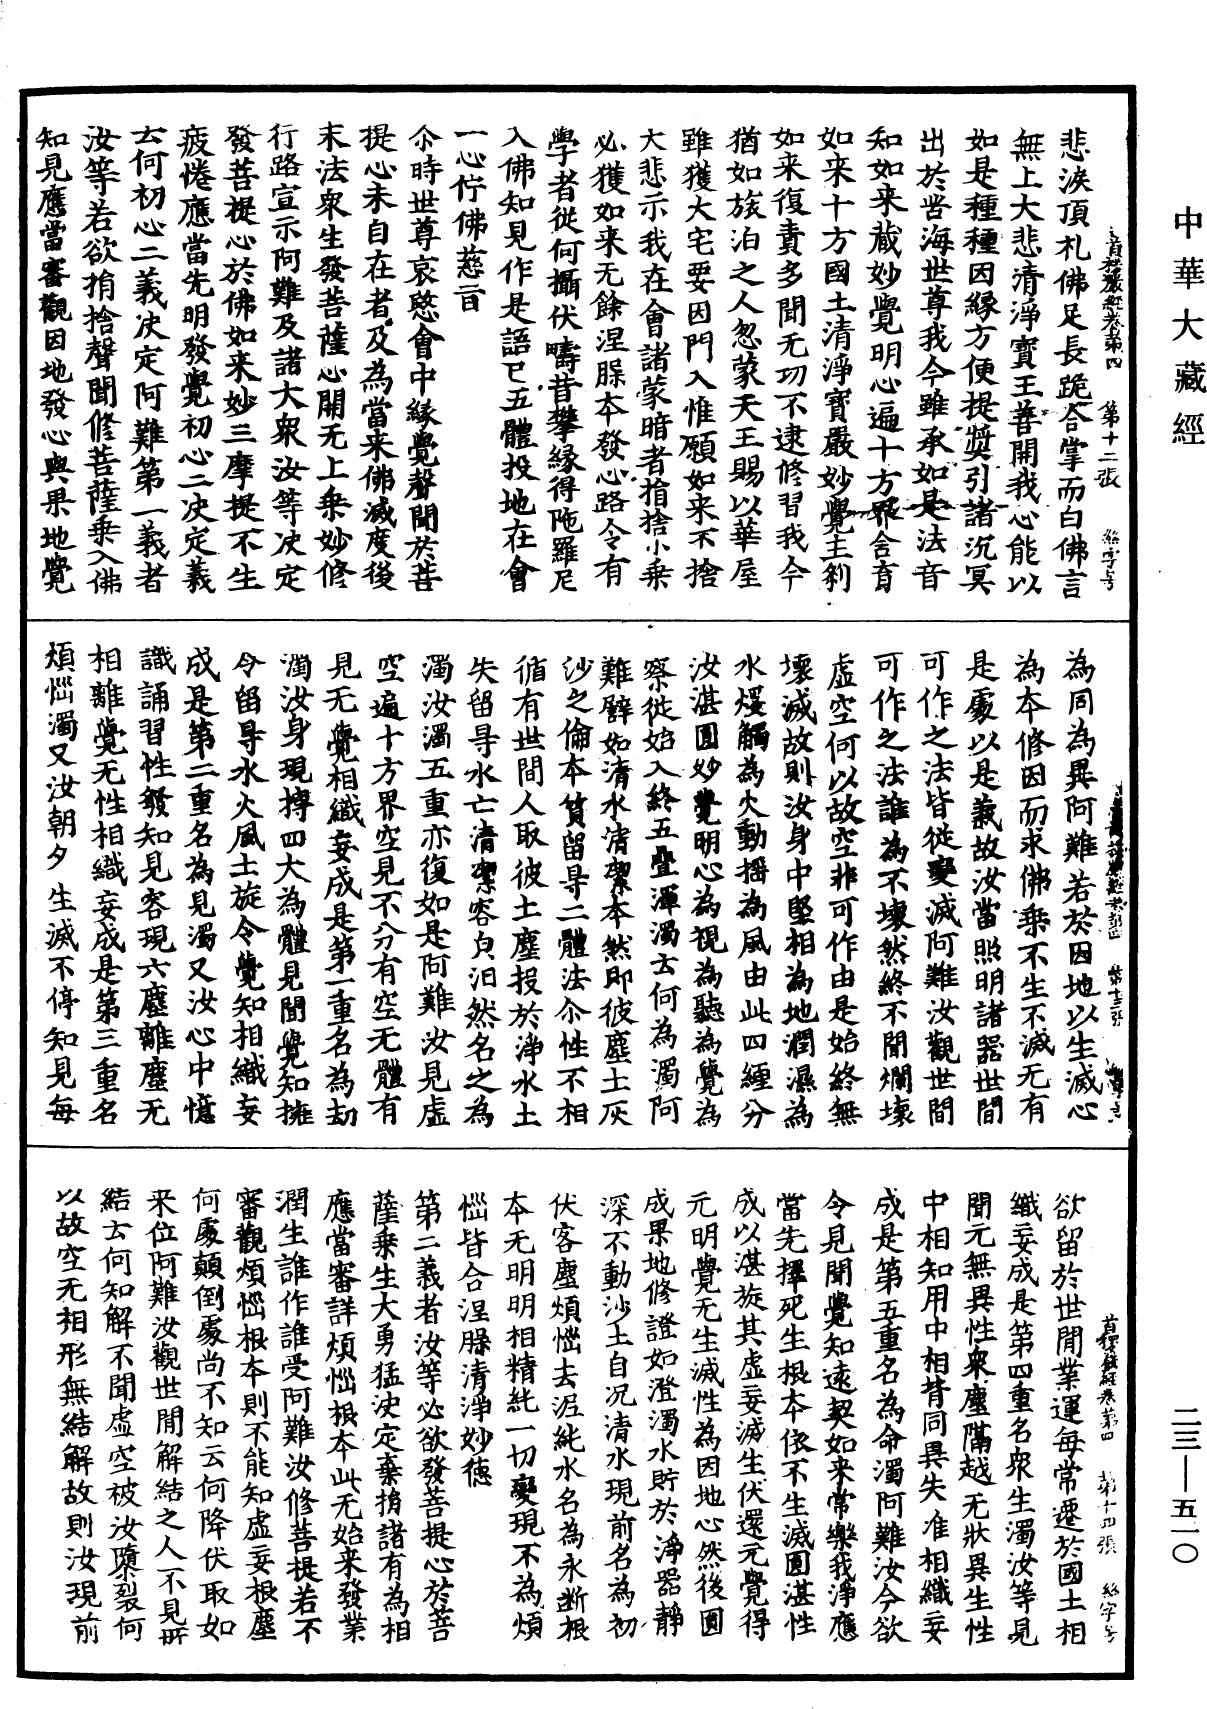 中華大藏經
首楞嚴經卷第四 第十二張 絲字号
悲淚頂礼佛足長跪合掌而白佛言
無上大悲清淨寶王善開我心能以
如是種種因緣方便提奬引諸沉冥
出於苦海世尊我今雖承如是法音
知如来藏妙覺明心遍十方界含育
如来十方國土清淨寶嚴妙覺王刹
如来復責多聞无功不逮修習我今
猶如旅泊之人忽蒙天王賜以華屋
雖獲大宅要因門入惟願如来不捨
大悲示我在會諸蒙暗者捐捨小乗
必獲如来无餘涅槃本發心路令有
學者從何攝伏疇昔攀緣得陁羅尼
入佛知見作是語已五體投地在會
一心佇佛慈旨
尒時世尊哀愍會中緣覺聲聞於菩
提心未自在者及為當来佛滅度後
末法衆生發菩薩心開无上乗妙修
行路宣示阿難及諸大衆汝等决定
發菩提心於佛如来妙三摩提不生
疲惓應當先明發覺初心二决定義
云何初心二義决定阿難第一義者
汝等若欲捐捨聲聞修菩薩乗入佛
知見應當審觀因地發心與果地覺
為同為異阿難若於因地以生滅心
為本修因而求佛乗不生不滅无有
是處以是義故汝當照明諸器世間
可作之法皆從變滅阿難汝觀世間
可作之法誰為不壞然終不聞爛壞
虛空何以故空非可作由是始終無
壞滅故則汝身中堅相為地潤濕為
水煖觸為火動揺為風由此四纏分
汝湛圓妙覺明心為視為聽為覺為
察從始入終五疊渾濁云何為濁阿
難譬如清水清潔本然即彼塵土灰
沙之倫本質留㝵二體法尒性不相
循有世間人取彼土塵投於淨水土
失留㝵水亡清潔容皃汩然名之為
濁汝濁五重亦復如是阿難汝見虛
空遍十方界空見不分有空无體有
見无覺相織妄成是第一重名為劫
濁汝身現摶四大為體見聞覺知擁
令留㝵水火風土旋令覺知相織妄
成是第二重名為見濁又汝心中憶
識誦習性發知見容現六塵離塵无
相離覺无性相織妄成是第三重名
煩惱濁又汝朝夕生滅不停知見每
首楞嚴經卷第四 第十四張 絲字号
欲留於世間業運每常遷於國土相
織妄成是第四重名衆生濁汝等見
聞元無異性衆塵隔越无狀異生性
中相知用中相背同異失准相織妄
成是第五重名為命濁阿難汝今欲
令見聞覺知遠契如来常樂我淨應
當先擇死生根本依不生滅圓湛性
成以湛旋其虛妄滅生伏還元覺得
元明覺无生滅性為因地心然後圓
成果地修證如澄濁水貯於淨器靜
深不動沙土自沉清水現前名為初
伏客塵煩惱去泥純水名為永斷根
本无明明相精純一切變現不為煩
惱皆合涅槃清淨妙德
第二義者汝等必欲發菩提心於菩
薩乗生大勇猛决定棄捐諸有為相
應當審詳煩惱根本此无始来發業
潤生誰作誰受阿難汝修菩提若不
審觀煩惱根本則不能知虛妄根塵
何處顛倒處尚不知云何降伏取如
来位阿難汝觀世間解結之人不見所
結云何知解不聞虛空被汝隳裂何
以故空无相形無結解故則汝現前
二三—五一〇